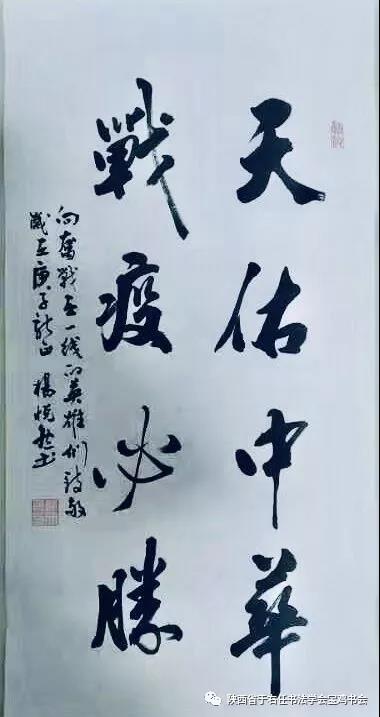 天佑中華
戰疫必勝
向奮戰在一线的英雄们致敬
歲在庚子新正 楊悅書
陕西省于右任书法学会宝鸡书会